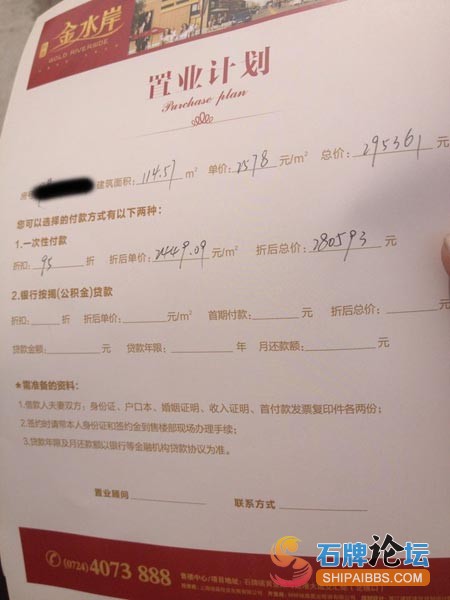 金水岸
GOLD RIVERSIDE
置业计划
Purchase plan
建筑面积：114.57 m² 单价：2578 元/m² 总价：295361 元
您可以选择的付款方式有以下两种：
1.一次性付款
折扣：95 折 折后单价：2449.09 元/m² 折后总价：280593 元
2.银行按揭(公积金)贷款
折扣： 折 折后单价： 元/m² 首期付款： 元 折后总价： 元
贷款金额： 元 贷款年限： 年 月还款额： 元
★需准备的资料：
1.借款人夫妻双方：身份证、户口本、婚姻证明、收入证明、首付款发票复印件各两份；
2.签约时请带本人身份证和签约金到售楼部现场办理手续；
3.贷款年限及月还款额以银行等金融机构贷款协议为准。
置业顾问 联系方式
(0724)4073 888
售楼中心/项目地址：石牌镇
石牌论坛
SHIPAIBBS.COM